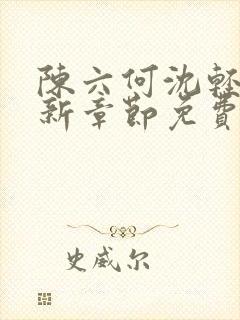 陳六何沈輕
新章節免費
史威尔